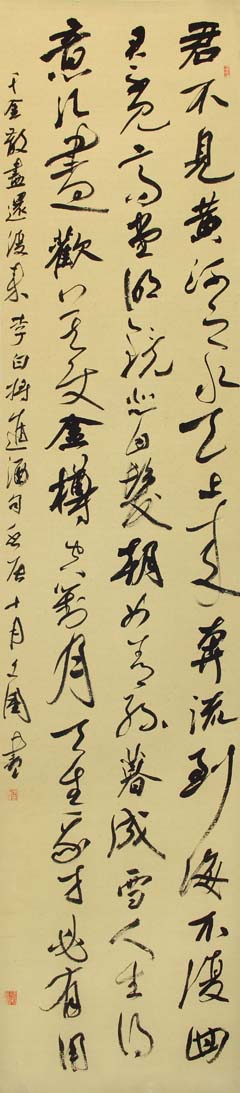 君不見黃河之水天上來奔流到海不復回
君不見高堂明鏡悲白髮朝如青絲暮成雪人生得
意須盡歡莫使金樽空對月天生我才必有用
千金散盡還復來 李白將進酒句 十月 國書